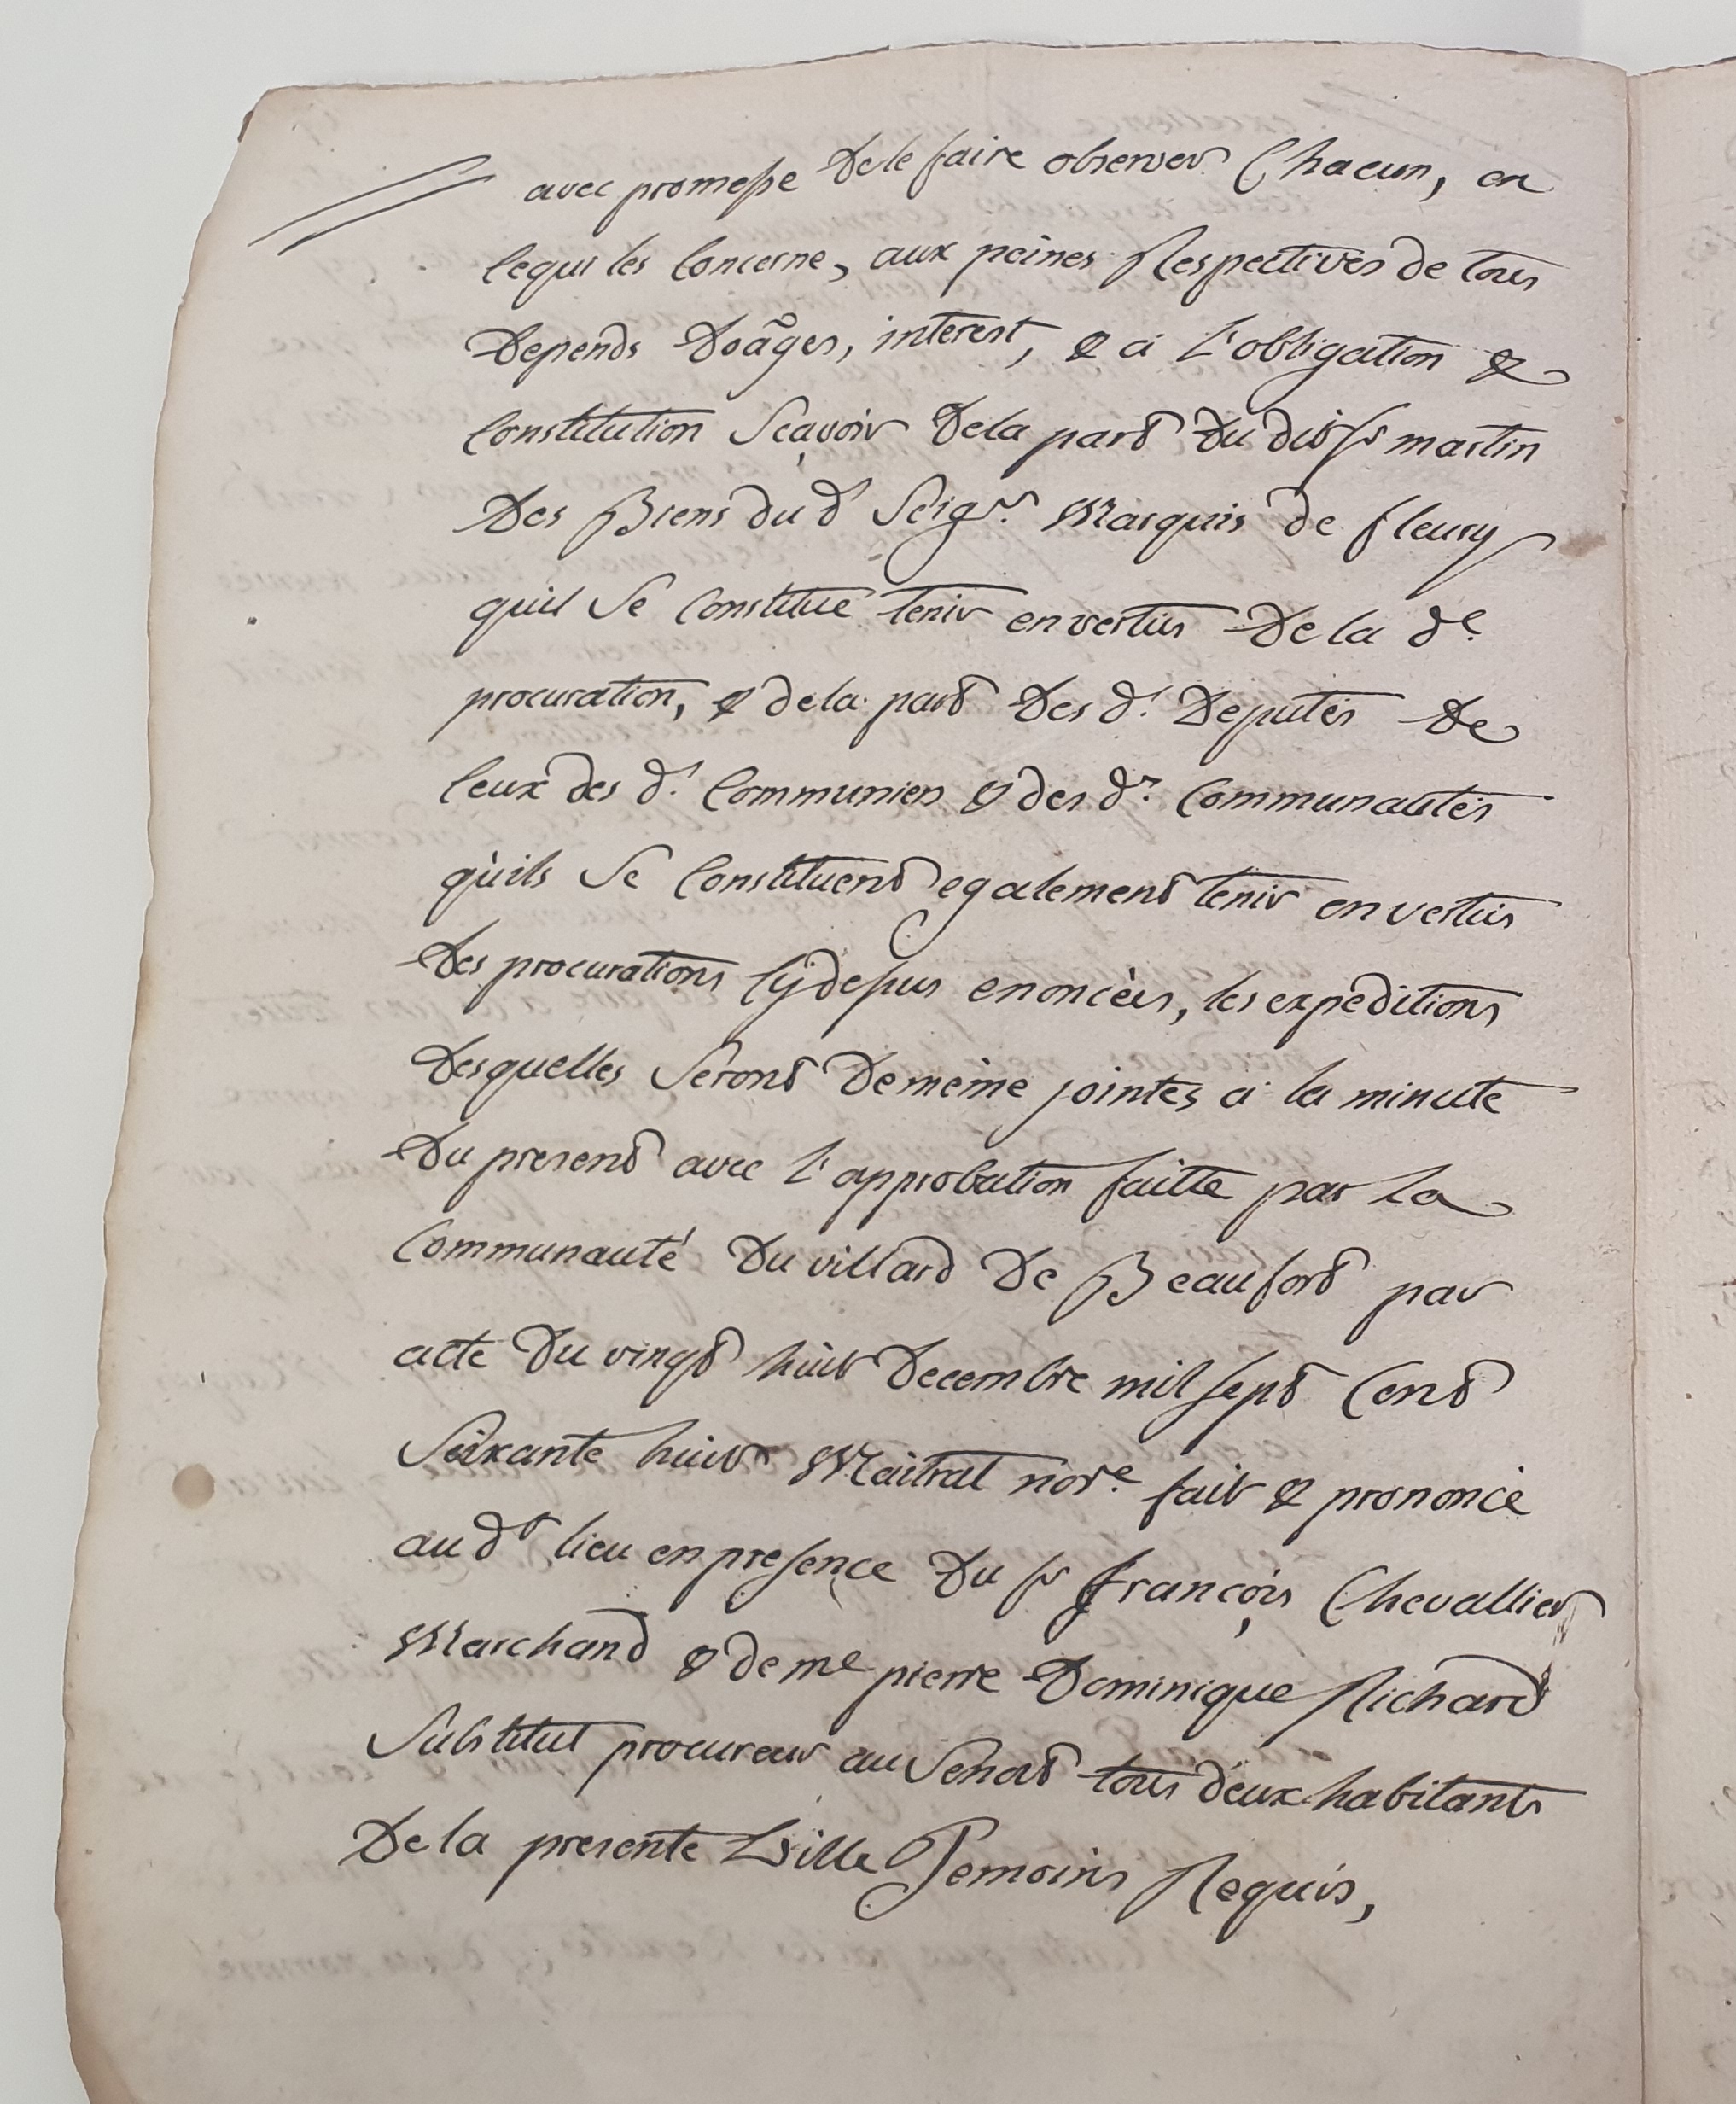 avec promesse de le faire observer Chacun, en
ce qui les Concerne, aux peines Respectives de tous
Depends Doãges, interest, & a L'obligation &
Constitution Sçavoir De la part Du dit Sr martin
Des Biens du d Seigr. Marquis de fleury
quil Se Constitue tenir en vertus De la de.
procuration, & de la part Des d. Deputés De
Ceux des d. Communiers & des des. Communautés
qu'ils Se Constituent egalement tenir en vertus
Des procurations Cy dessus enoncées, les expeditions
Desquelles Seront De même jointes a la minute
Du present avec l'approbation faitte par La
Communauté Du villard De Beaufort par
acte Du vingt huit Decembre mil sept Cent
Soixante huit Maitral nore. fait & prononcé
au dt lieu en presence Du sr françois Chevallier
Marchand & de me pierre Dominique Richard
Substitut procureur au Senat tous deux habitants
De la presente Ville Temoins Requis,